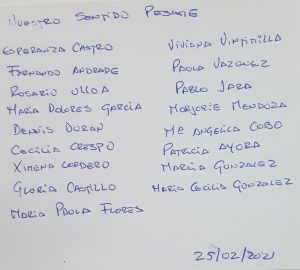 Nuestro Sentido Pesame
Esperanza Castro
Fernando Andrade
Rosario Ulloa
Maria Dolores Garcia
Dennis Duran
Cecilia Crespo
Ximena Cordero
Gloria Castillo
Maria Paula Flores
Viviana Vintimilla
Paola Vazquez
Pablo Jara
Marjorie Mendoza
Ma Angelica Cobo
Patricia Ayora
Marcia Gonzalez
Maria Cecilia Gonzalez
25/02/2021